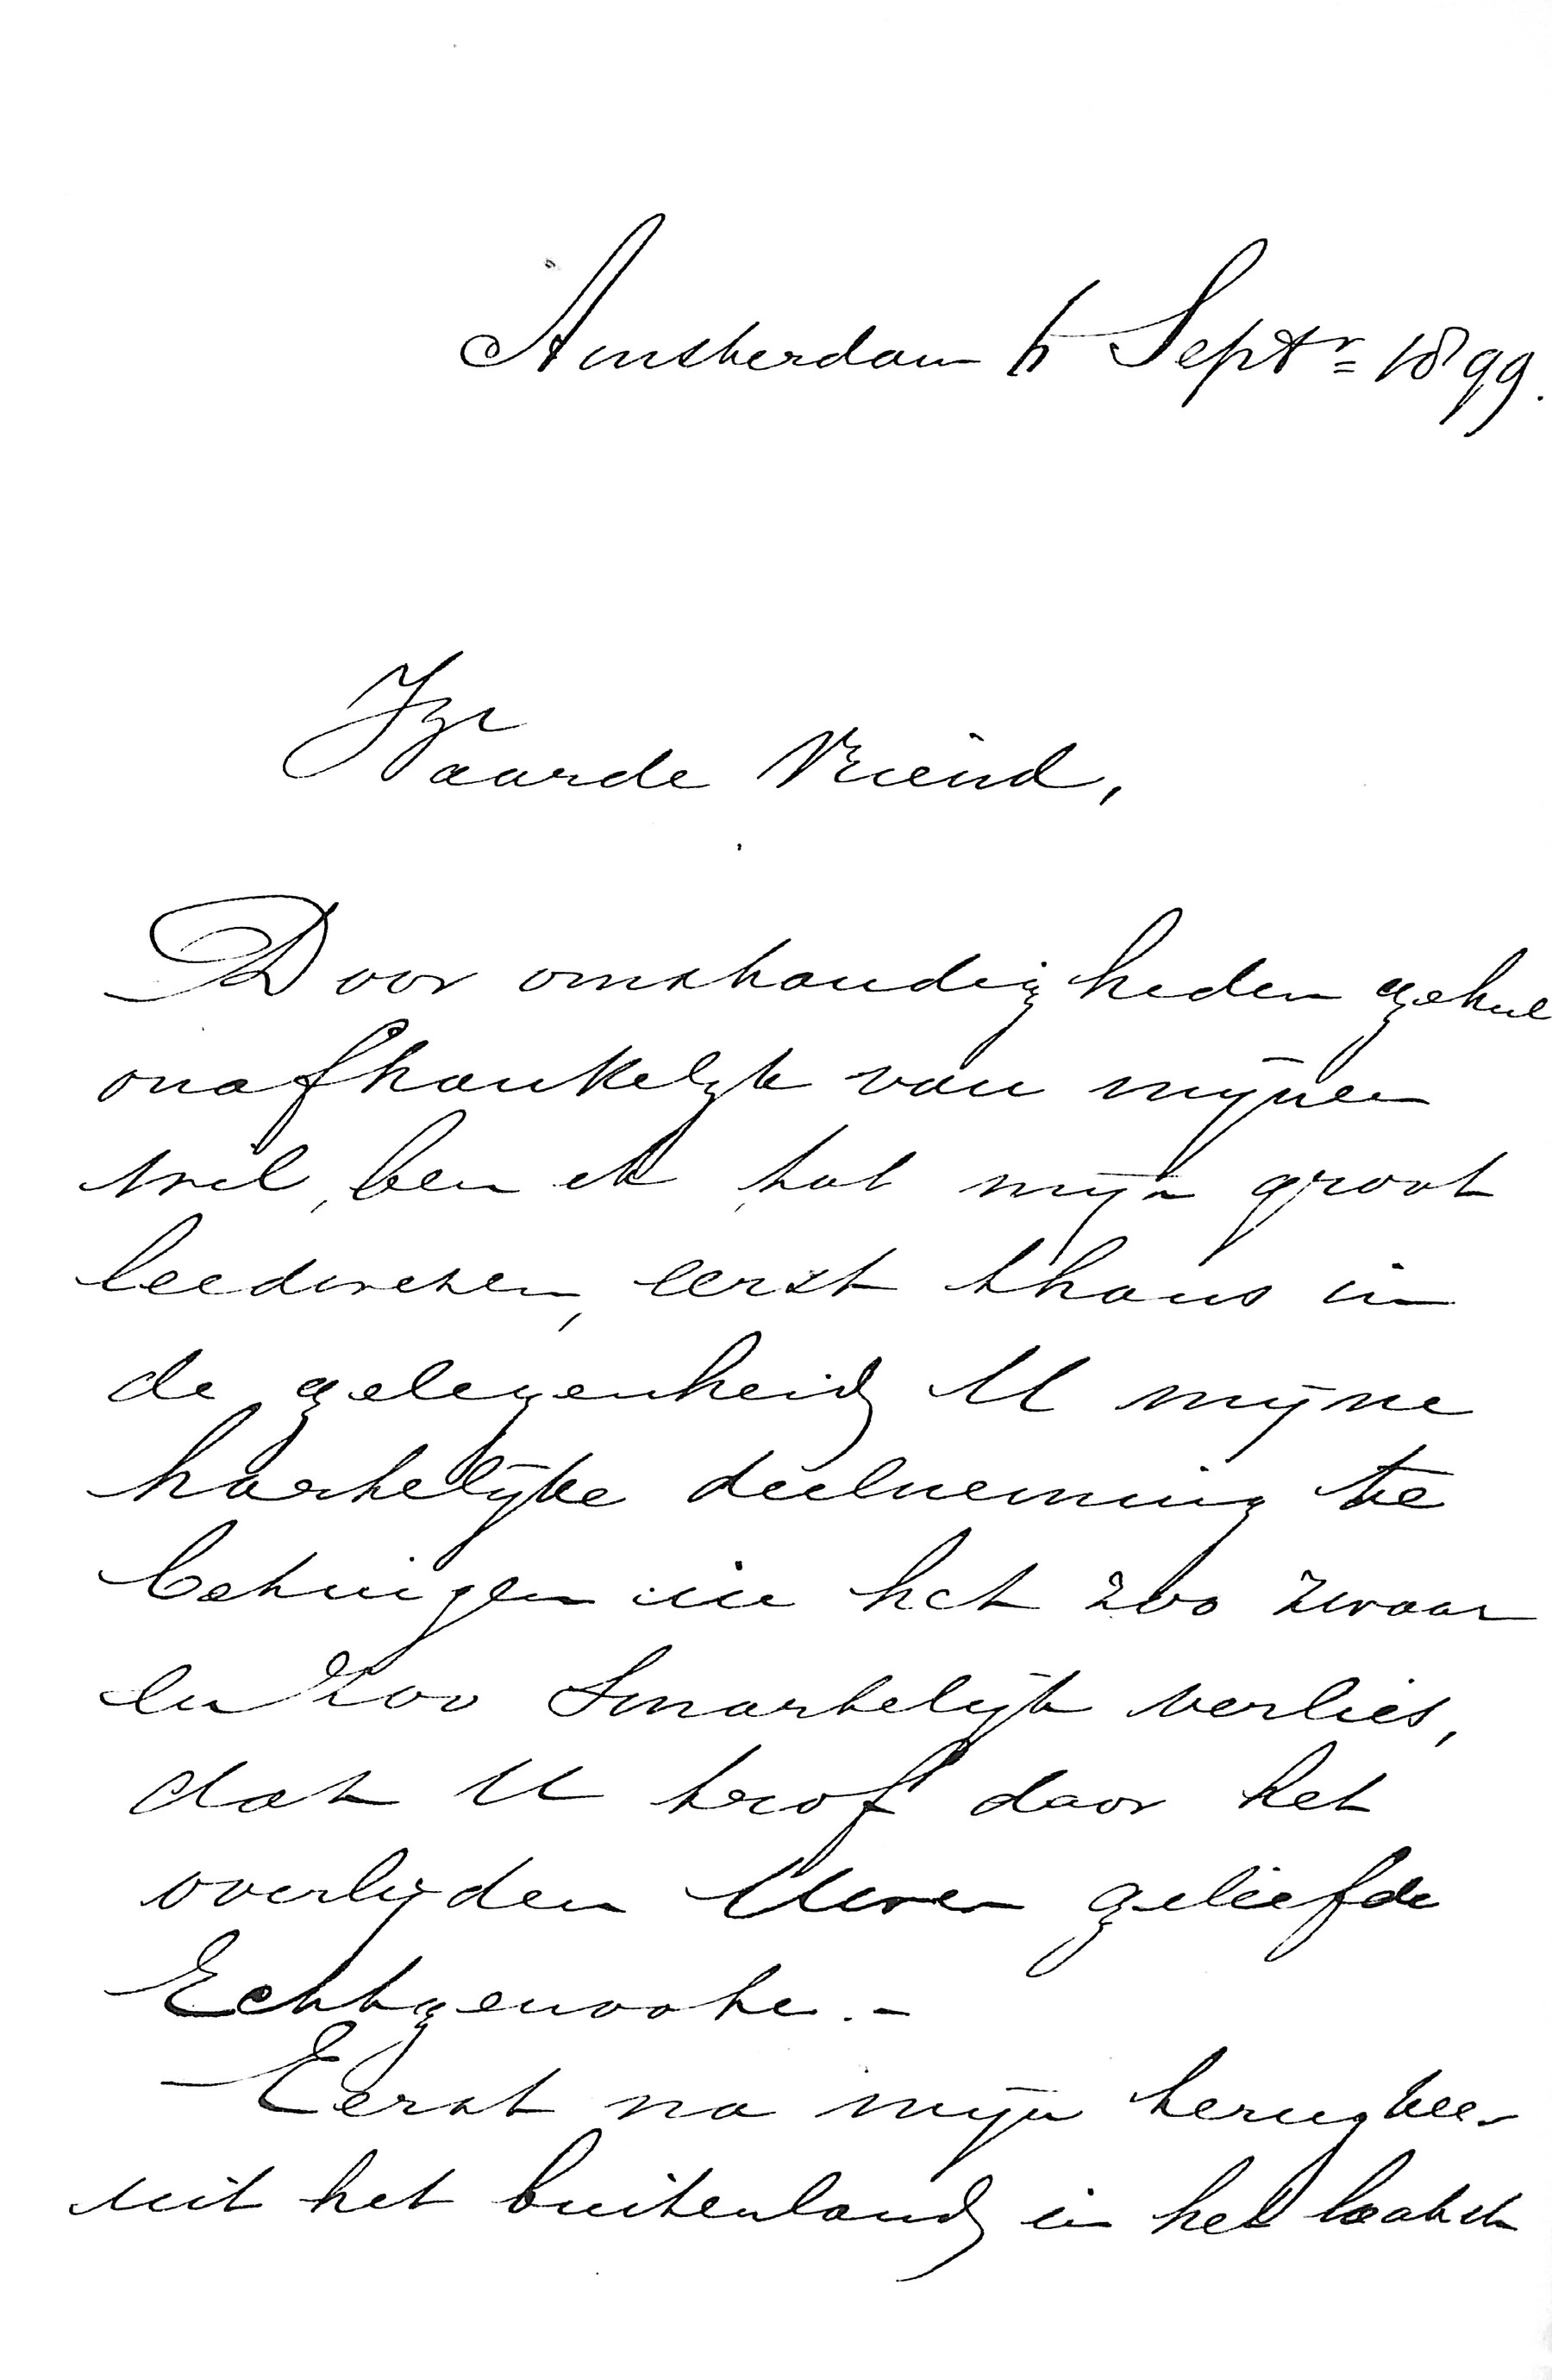 Amsterdam 5 Septr 1899.
Waarde Vriend,
Door omstandigheden geheel
onafhankelijk van mijnen
wil, ben ik tot mijn groot
leedwezen, eerst thans in
de gelegenheid U mijne
hartelijke deelneming te
betuigen in het zoo zwaar
en zoo smartelijk verlies,
dat U trof door het
overlijden Uwer geliefde
Echtgenoote. -
Eerst na mijn terugkeer
uit het buitenland in het laatst